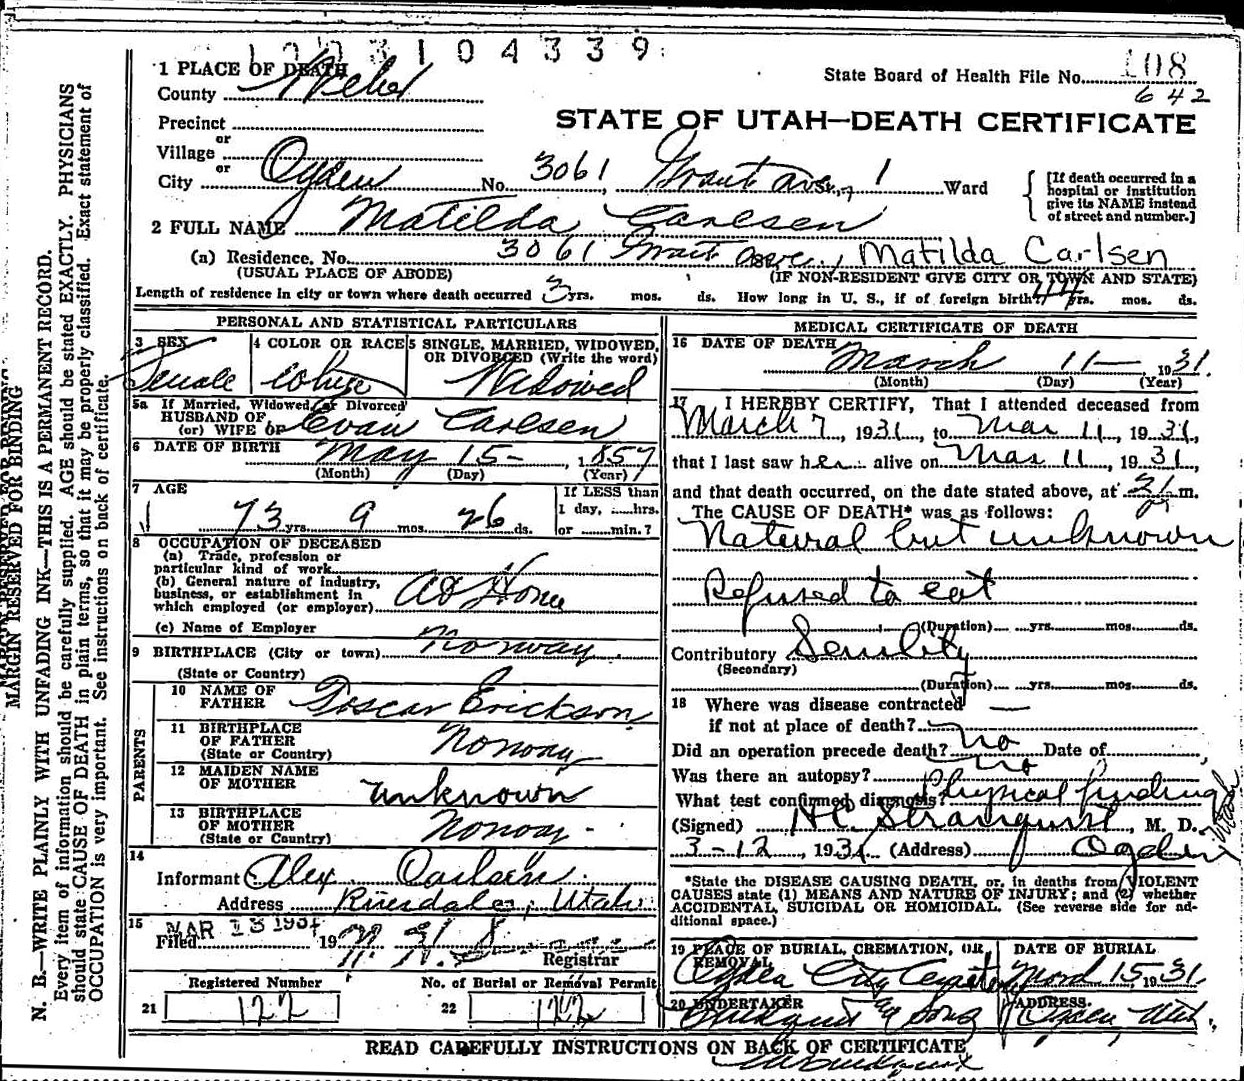 1003104339
1 PLACE OF DEATH
State Board of Health File No. 108
County Weber
642
Precinct
STATE OF UTAH—DEATH CERTIFICATE
or
Village
or
City Ogden No. 3061 Grant Ave., 1 Ward
[If death occurred in a hospital or institution give its NAME instead of street and number.]
2 FULL NAME Matilda Carlsen
(a) Residence. No. 3061 Grant Ave., Matilda Carlsen
(USUAL PLACE OF ABODE) (IF NON-RESIDENT GIVE CITY OR TOWN AND STATE)
Length of residence in city or town where death occurred 3 yrs. mos. ds. How long in U. S., if of foreign birth? yrs. mos. ds.
PERSONAL AND STATISTICAL PARTICULARS
3 SEX
Female
4 COLOR OR RACE
White
5 SINGLE, MARRIED, WIDOWED, OR DIVORCED (Write the word)
Widowed
5a If Married, Widowed, or Divorced
HUSBAND OF
(or) WIFE OF Evan Carlsen
6 DATE OF BIRTH May 15 - , 1857
(Month) (Day) (Year)
7 AGE
73 yrs. 9 mos. 26 ds.
If LESS than
1 day, ......hrs.
or ........min.?
8 OCCUPATION OF DECEASED
(a) Trade, profession or
particular kind of work
(b) General nature of industry,
business, or establishment in
which employed (or employer) At Home
(c) Name of Employer
9 BIRTHPLACE (City or town) Norway
(State or Country)
PARENTS
10 NAME OF
FATHER Oscar Erickson
11 BIRTHPLACE
OF FATHER Norway
(State or Country)
12 MAIDEN NAME
OF MOTHER unknown
13 BIRTHPLACE
OF MOTHER Norway -
(State or Country)
14
Informant Alex Carlsen
Address Riverdale, Utah
15 MAR 13 1931
Filed 19
Registrar
Registered Number No. of Burial or Removal Permit
21 122 22 122
MEDICAL CERTIFICATE OF DEATH
16 DATE OF DEATH
March 11 — , 1931.
(Month) (Day) (Year)
17 I HEREBY CERTIFY, That I attended deceased from
March 7, 1931, to Mar 11, 1931,
that I last saw her alive on Mar 11, 1931,
and that death occurred, on the date stated above, at m.
The CAUSE OF DEATH* was as follows:
Natural but unknown
Refused to eat
(Duration) yrs. mos. ds.
Contributory Senility
(Secondary)
(Duration) yrs. mos. ds.
18 Where was disease contracted —
if not at place of death?
Did an operation precede death? no Date of
Was there an autopsy? no
What test confirmed diagnosis? Physical findings
(Signed) HC Stranquist, M. D.
3-12, 1931 (Address) Ogden
*State the DISEASE CAUSING DEATH, or, in deaths from VIOLENT
CAUSES state (1) MEANS AND NATURE OF INJURY; and (2) whether
ACCIDENTAL, SUICIDAL OR HOMICIDAL. (See reverse side for ad-
ditional space.)
19 PLACE OF BURIAL, CREMATION, OR
REMOVAL
Ogden City Cemetery
DATE OF BURIAL
15, 1931
20 UNDERTAKER
Lindquist & Sons
ADDRESS.
Ogden, Utah.
READ CAREFULLY INSTRUCTIONS ON BACK OF CERTIFICATE
MARGIN RESERVED FOR BINDING
N. B.—WRITE PLAINLY WITH UNFADING INK—THIS IS A PERMANENT RECORD.
Every item of information should be carefully supplied. AGE should be stated EXACTLY. PHYSICIANS
should state CAUSE OF DEATH in plain terms, so that it may be properly classified. Exact statement of
OCCUPATION is very important. See instructions on back of certificate.